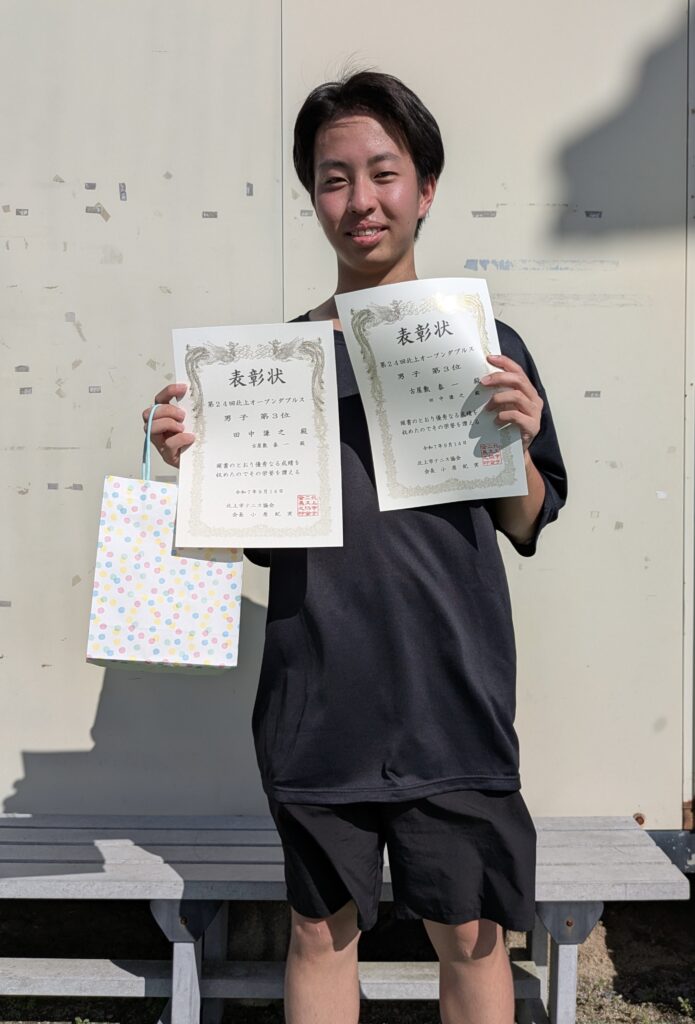 表彰状
第24回北上オープンダブルス
男子 第3位
田中謙之 殿
古屋敷泰一
頭書のとおり優秀なる成績を
収めたのでその栄誉を讃える
令和7年9月14日
北上市テニス協会
会長 小原紀実
表彰状
第24回北上オープンダブルス
男子 第3位
古屋敷泰一 殿
田中謙之
頭書のとおり優秀なる成績を
収めたのでその栄誉を讃える
令和7年9月14日
北上市テニス協会
会長 小原紀実